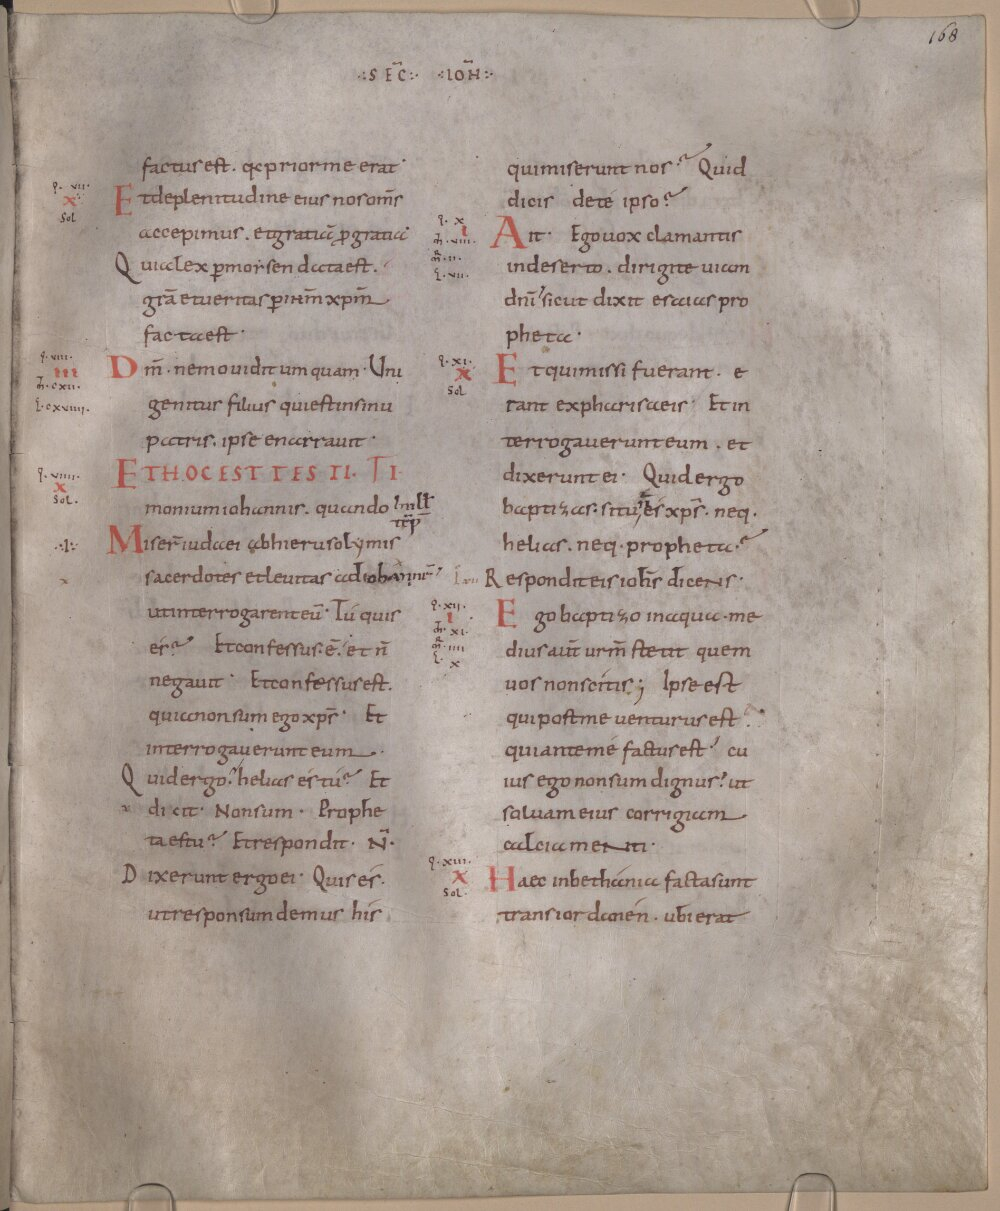 168
·:SEC̄:· ·:IOH̄:·
factus est. qa prior me erat·
I· VII·
X
Sol
Et de plenitudine eius nos om̄s
accepimus. et gratiā ꝓ gratia
Quia lex ꝑ morsen data est.
gr̄a et ueritas ꝑ ihm̄ xpm̄
facta est·
I· VIII·
III
M̄· CXII·
L· CXVIII·
Dm̄· nemo uidit umquam· Uni
genitus filius qui est in sinu
patris. ipse enarrauit·
I· VIIII·
X
Sol·
ET HOC EST TESTI· TI·
monium iohannis. quando
·I·
Miser̄ iudaei ab hierusolymis
sacerdotes et leuitas ad iohannē
ut interrogarent eū· Tú quis
és? Et confessus. ē. et n̄
negauit· Et confessus est.
quia non sum ego xps̄· Et
interrogauerunt eum·
Quid ergo? helias és tú? Et
dicit· Non sum· Prophe
ta es tu? Et respondit· N̄·
Dixerunt ergo ei· Quis és·
ut responsum demus his
qui miserunt nos? Quid
dicis de té ipso?
I· X
I
M̄· VIII·
II·
L· VII·
Ait· Ego uox clamantis
in deserto. dirigite uiam
dnī sicut dixit esaias pro
pheta·
I· XI·
X
Sol
Et qui missi fuerant· e
rant ex pharisaeis· Et in
terrogauerunt eum. et
dixerunt ei· Quid ergo
baptizas. si tu és xps̄· neq·
helias. neq· propheta?
Respondit eis ioh̄s dicens·
I· XII·
I
M̄· XI·
IIII
L· X
Ego baptizo in aqua· me
dius aut̄ urm̄ stetit quem
uos non scitis; Ipse est
qui post me uenturus est
qui ante mé factus est cu
ius ego non sum dignus ut
soluam eius corrigiam
calciamenti·
I· XIII·
X
Sol·
Haec in bethania facta sunt
trans iordanén· ubi erat